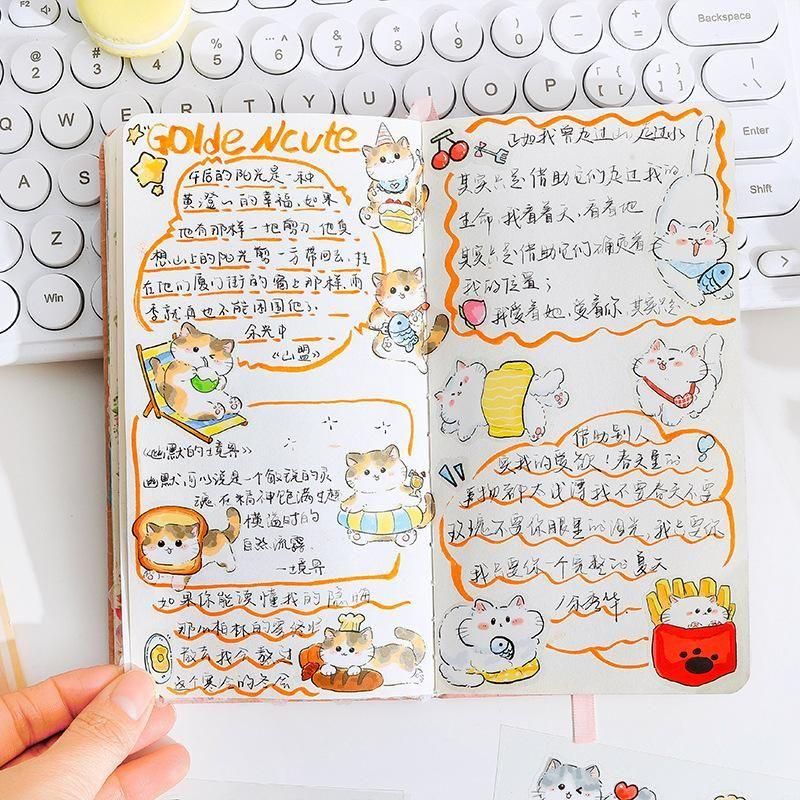 GOlde Ncute
午后的阳光是一种
黄澄澄的幸福.如果
也有那样一把剪刀.他真
想山上的阳光剪一方带回去.挂
在他们厦门街的窗上那样.雨
季就再也不能困住他了.
余光中
《山盟》
《幽默的境界》
幽默.可以说是一个敏锐的
魂.在精神饱满生
横溢时的
自然流露.
—境界
如果你能读懂我的隐晦
柏林的
散去我会熬过
这个寒冷的冬
正如我曾走过山.走过水
其实只是借助它们走过我的
生命.我看着天.看着地
其实只是借助它们确定着
我的位置;
我爱着她.爱着你.其实只是
借助别人
实我的爱欲!春天里的
事物都太
玫瑰不要你眼里的泪光.我只要你
我只要你一个完整的夏天
余秀华
F2
@
2
#
3
$
4
%
5
^
6
&
7
*
8
(
9
)
0
Backspace
Q
W
E
R
T
Y
U
I
O
P
{
[
}
]
|
\
A
S
Enter
Z
Shift
Win